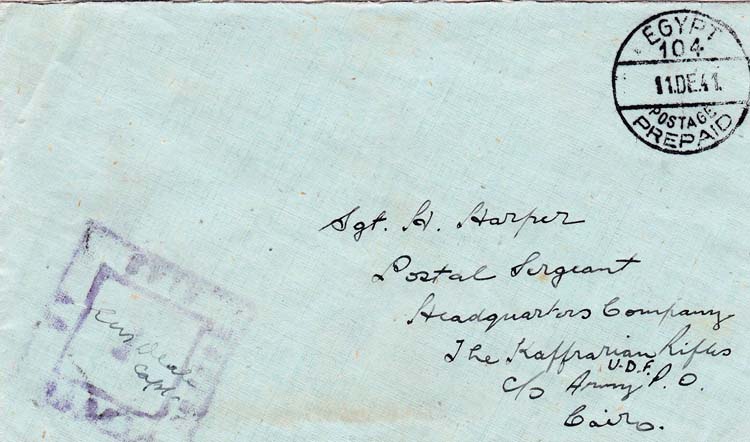 EGYPT
104
11.DE.41.
POSTAGE
PREPAID
Sgt. H. Harper
Postal Sergeant
Headquarters Company
The Kaffrarian Rifles
U.D.F.
c/o Army P.O.
Cairo.
Capt.